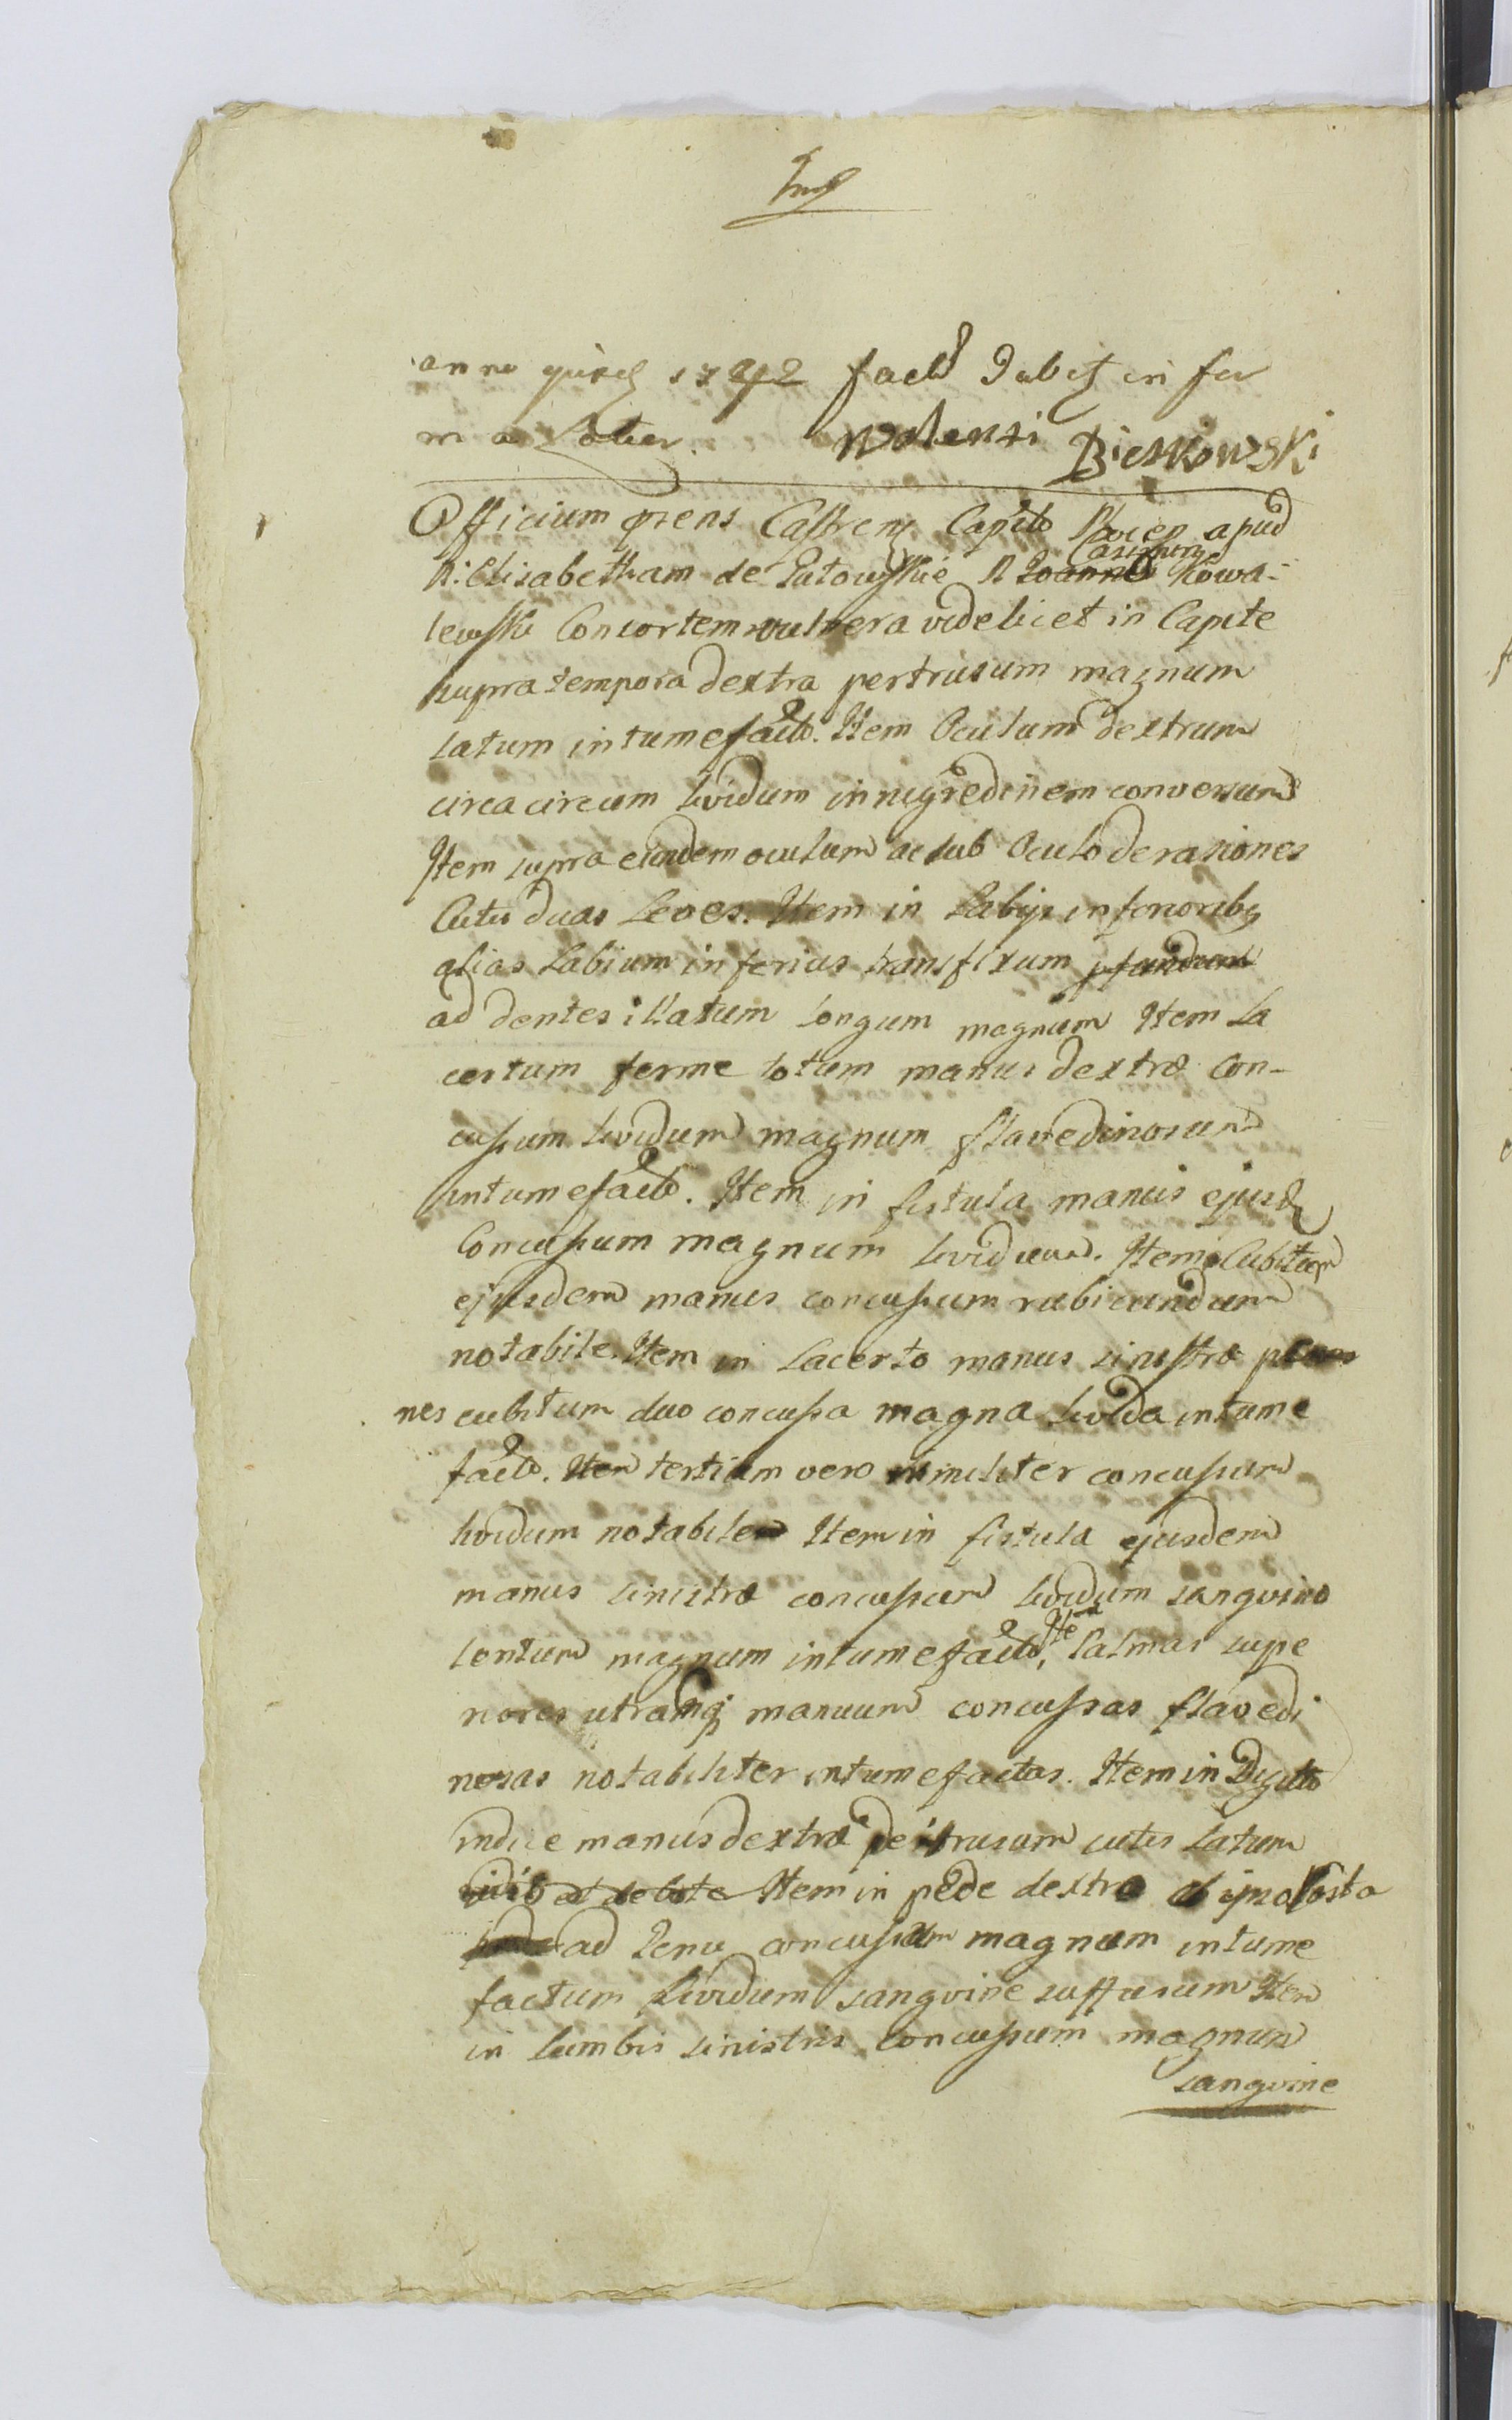 anno 1742 in for
ma
Walenti Bieńkowski
Officium prens Castren Capit apud
N: Elisabetham de N Joanne Casimiri Kowa-
lewski Consortem vulnera videlicet in Capite
supra tempora dextra pertrusum magnum
latum intumefact. Item Oculum dextrum
circa circum lividum in nigredinem conversum
Item supra eundem oculum ac sub Oculo derasiones
Cutis duas Leves. Item in Labijs inferioribq
alias Labium inferius transfixum
ad dentes illatum longum magnum Item La
certum ferme totum manus dextræ Con-
cussum lividum magnum flavedinosum
intumefact. Item in fistula manus ejusd
Concussum magnum lividum. Item Cubitum
ejusdem manus concussum rubicundum
notabile. Item in Lacerto manus sinistræ pe
nes cubitum duo concussa magna livida intume
fact. Item tertium vero similiter concussum
lividum notabile Item in fistula ejusdem
manus sinistræ concussum lividum sangvino
lentum magnum intumefact, Ite Palmas supe
riores utramq manuum concussas flavedi
nosas notabiliter intumefactas. Item in Digito
indice manus dextræ detrusum cutis latum
Item in pede dextro ab ipsa Costa
ad Genu concussum magnum intume
factum lividum sangvine suffusum Item
in lumbis sinistris concussum magnum
sangvine